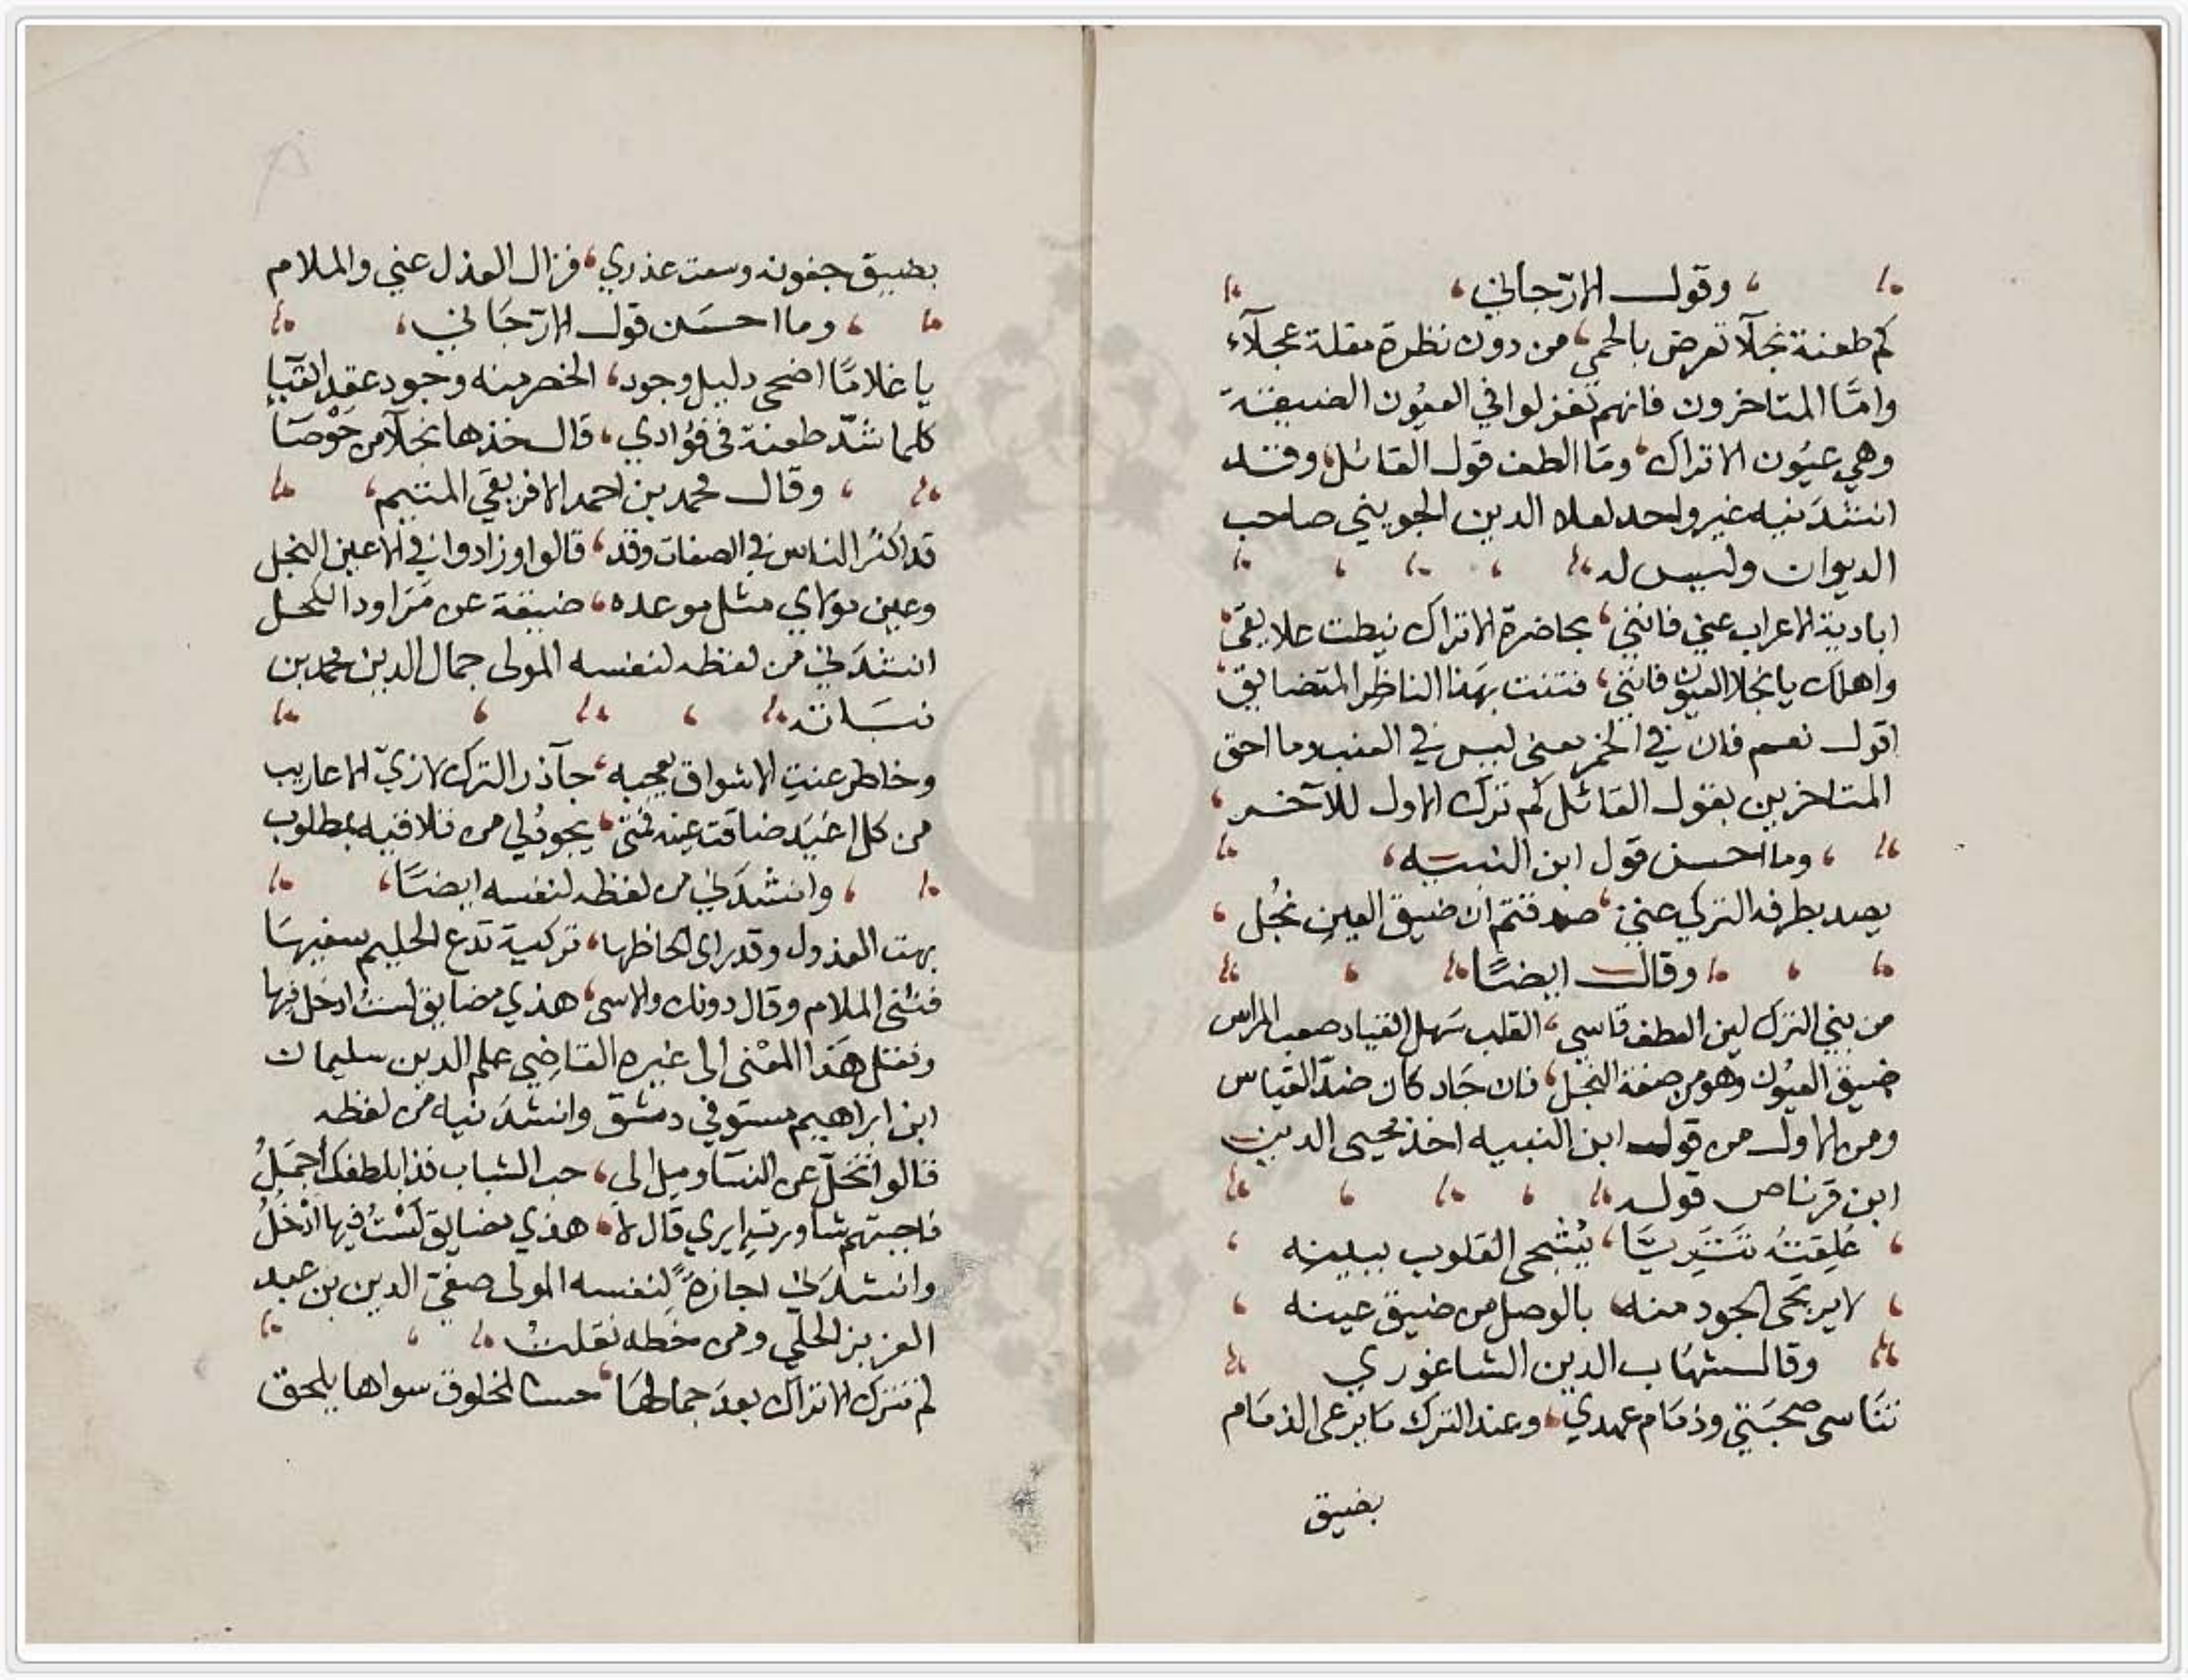 وقول الارّجاني
كم طعنة نجلآ تعرض بالحمى من دون نظرة مقلة نجلآء
وامّا المتاخرون فانهم تغزلوا في العيُون الضيقة
وهي عيُون الاتراك ومَا الطف قول القائل وقد
انشدَنيه غير واحد لعلاء الدين الجويني صاحب
الديوان وليس له
ابادية الاعراب عني فانني بحاضرة الاتراك نيطت علايقى
واهلك يا نجلا العيون فانني فتنت بهَذا الناظر المتضايق
اقول نعم فان في الخمر معنى ليس في العنب وما احق
المتاخرين بقول القائل كم ترك الاول للآخر
وما احسن قول ابن النبيه
يصد بطرفه التركي عني صدقتم ان ضيق العين بُخل
وقال ايضًا
من بني الترك لين العطف قاسي القلب سَهل القياد صعب المراس
ضيق العيُون وهو من صفة البخل فان جَاد كان ضدّ القياس
ومن الاول من قول ابن النبيه اخذ محيى الدين
ابن قرناص قوله
عُلِقتُه تَتَرِيَّا يُشجى القلوب ببينه
لا يرتجى الجود منه بالوصل من ضيق عينه
وقال شهَاب الدين الشاغوري
تنَاسى صحبَتي وذمَام عهدي وعند الترك مَا يرعى الذمَام
بضيق
بضيق جفونه وسعت عذري فزال العذل عني والملام
وما احسَن قول الارّجَاني
يا غلامًا اضحى دليل وجود الخصر منه وجود عقد القبآ
كلما شدّ طعنة في فؤادي قال خذها نجلآ من خَوْصَا
وقال محمد بن احمد الافريقي المتيم
قد اكثرُ الناس في الصفات وقد قالوا وزادوا في الاعين النجل
وعين مولاي مثل موعده ضيقة عن مَراود الكحل
انشدَني من لفظه لنفسه المولى جمال الدين محمد بن
نبَاته
وخاطر عنتِ الاشواق يعجبه جآذر الترك لا زيّ الاعاريب
من كل اغيَد ضاقت عينه فمتى يجود لي من تلافيه بمطلوب
وانشدَني من لفظه لنفسه ايضًا
بهت العذول وقد راى الحاظها تركية تدع الحليم سفيهَا
فثنى الملام وقال دونك والاسى هذي مضايق لستُ ادخل فيها
ونقل هَذا المعْنى الى غيره القاضِي علم الدين سليمان
ابن ابراهيم مستوفي دمشق وانشدَنيه من لفظه
قالوا تخلّ عن النسَا ومِل الى حب الشباب فذا بلطفك اجمَلُ
فاجبتهم شاورت ايري قال لا هذي مضايق لسْتُ فيها ادْخُلُ
وانشدَني اجازةً لنفسه المولى صفيّ الدين بن عبد
العزيز الحلّي ومن خطه نقلتُ
لم تترك الاتراك بعدَ جمالهَا حسنا لمخلوق سواها يلحق